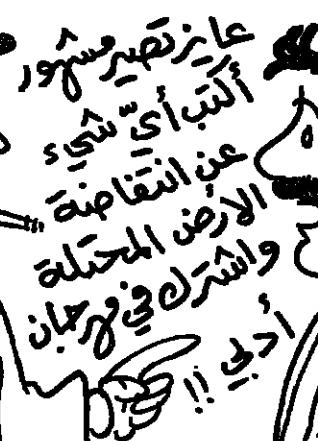 عايز تصير مشهور
أكتب أيّ شيء
عن انتفاضة
الارض المحتلة
واشترك في مهرجان
أدبي !!